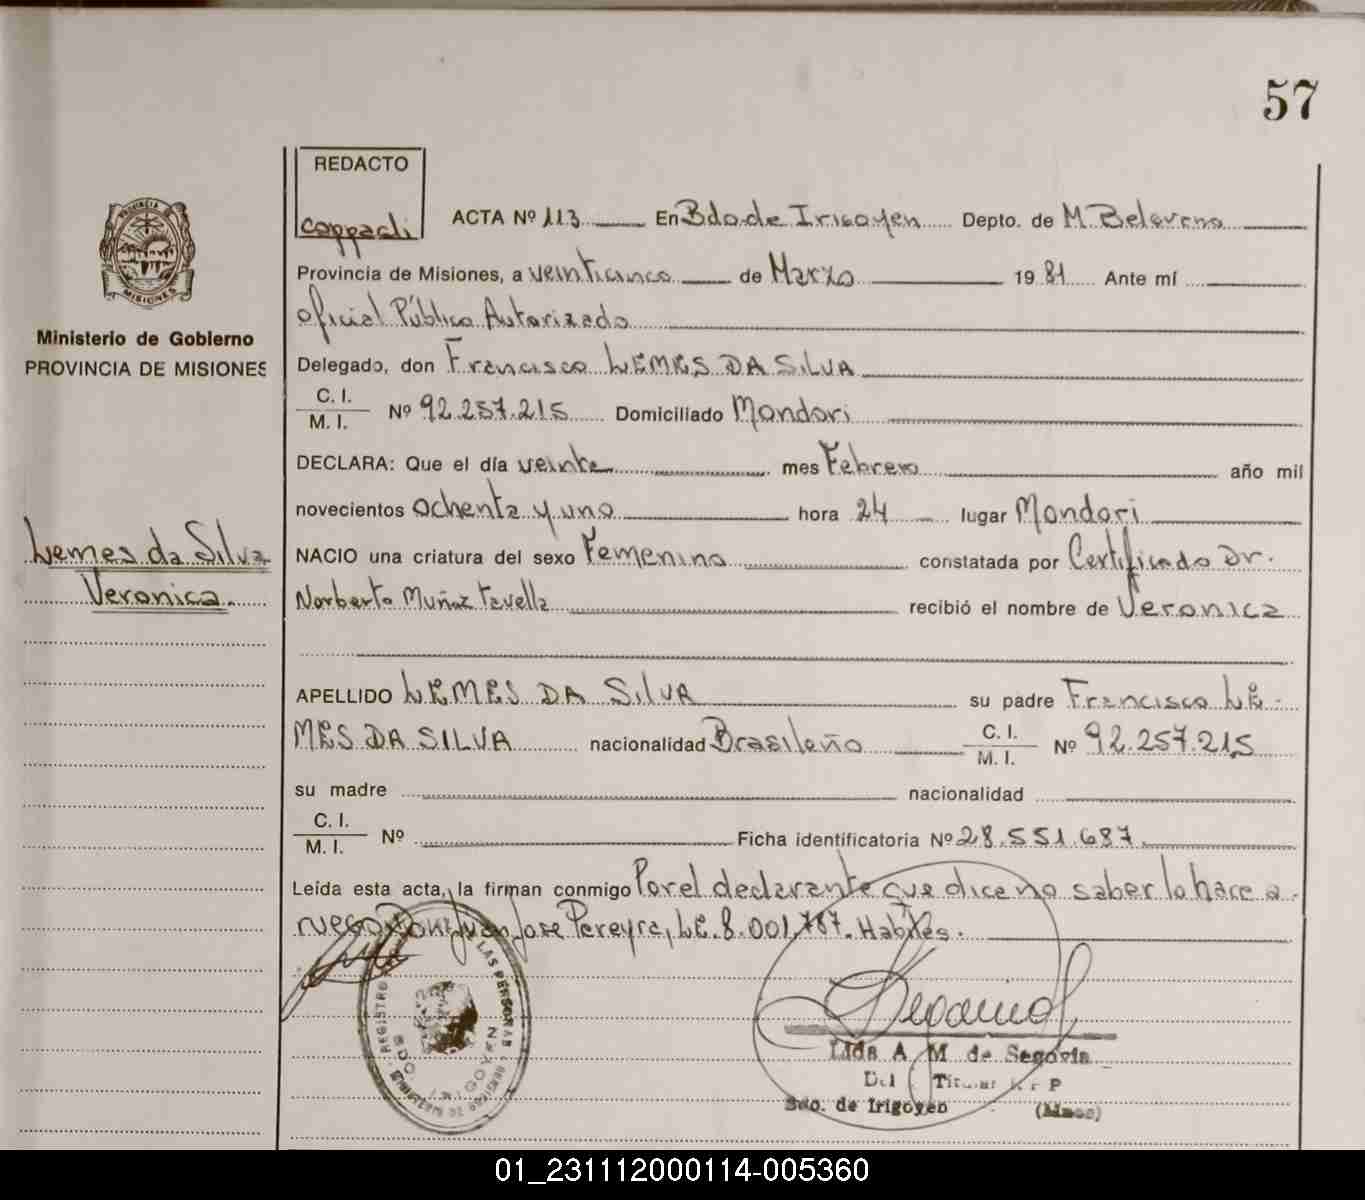 57
REDACTO
coppadi
ACTA Nº 113 En Bdo. de Irigoyen Depto. de M. Belgrano
PROVINCIA DE
MISIONES
Provincia de Misiones, a veinticinco de Marzo 1981 Ante mí
oficial Público Autorizado
Ministerio de Gobierno
PROVINCIA DE MISIONES
Delegado, don Francisco LEMES DA SILVA
C. I.
M. I. Nº 92.257.215 Domiciliado Mondori
DECLARA: Que el día veinte mes Febrero año mil
novecientos ochenta y uno hora 24 lugar Mondori
Lemes da Silva
Veronica.
NACIO una criatura del sexo Femenino constatada por Certificado Dr.
Norberto Muñoz Favella recibió el nombre de Veronica
APELLIDO LEMES DA SILVA su padre Francisco LE-
MES DA SILVA nacionalidad Brasileño C. I. M. I. Nº 92.257.215
su madre nacionalidad
C. I.
M. I. Nº Ficha identificatoria Nº 28.551.687
Leída esta acta, la firman conmigo Por el declarante que dice no saber lo hace a
ruego Don Juan Jose Pereyra, LE. 8.001.787. Habiles.
REGISTRO LAS PERSONAS
BDO. IRIGOYEN
Lida A M de Segovia
Del Titular R P
Bdo. de Irigoyen (Mnes)
01_231112000114-005360